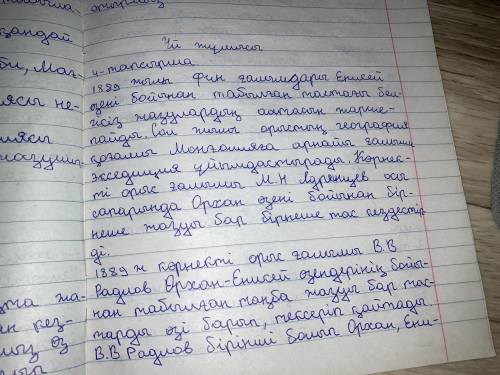 Үй жұмысы
4-тапсырма
1889 жылы фин ғалымдары Енисей
өзені бойынан табылған тастағы бел-
гісіз жазулардың атласын жарме-
пайды. Сол жылы орыстың география
қоғамы Монғолияға арнайы ғылыми
экседиция ұйымдастырады. Көрнек-
ті орыс ғалымы М.Н. Ядренцев осы
сапарында Орхан өзені бойынан бір-
неше жазуы бар бірнеше тас кездестір-
ді.
1889 ж көрнекті орыс ғалымы В.В
Радлов Орхан-Енисей өзендерінің бойы-
нан табылған таңба жазуы бар тас-
тарды өзі барып, тексеріп қайтады
В.В Радлов бірінші болып Орхан, Ени-
қандай
би, Мағ-
ясы не-
мясы
қта жа-
ан кез-
ың өз